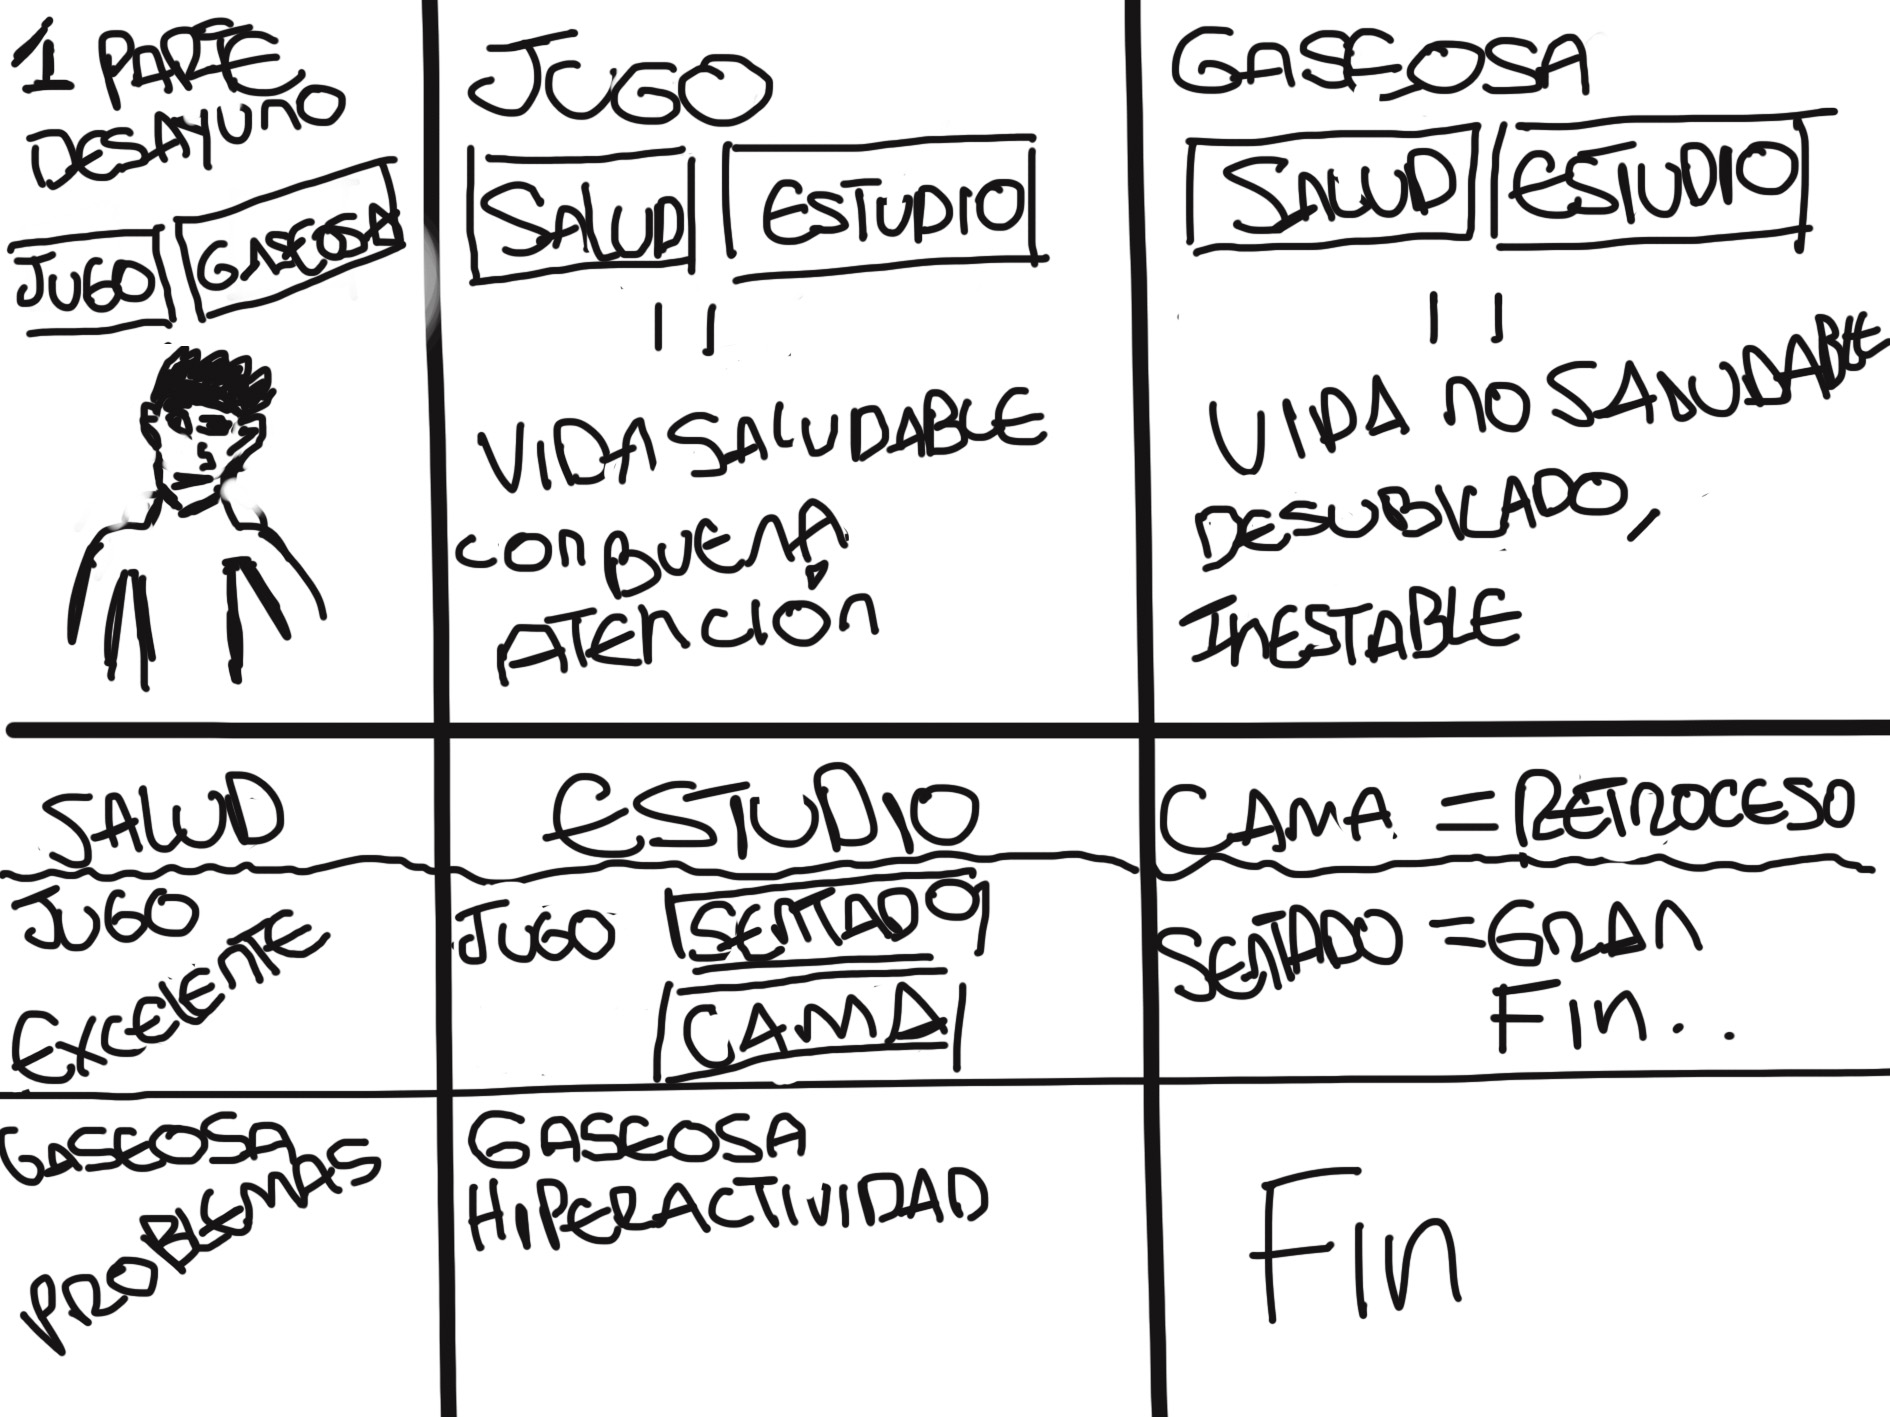 1 PARTE
DESAYUNO
JUGO
GASEOSA
JUGO
SALUD
ESTUDIO
VIDA SALUDABLE
CON BUENA
ATENCIÓN
GASEOSA
SALUD
ESTUDIO
VIDA NO SALUDABLE
DESUBICADO,
INESTABLE
SALUD
JUGO
EXCELENTE
GASEOSA
PROBLEMAS
ESTUDIO
JUGO SENTADO
CAMA
GASEOSA
HIPERACTIVIDAD
CAMA = RETROCESO
SENTADO = GRAN
FIN...
FIN